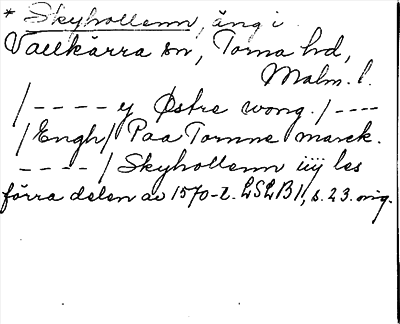 * Skyhollenn, äng i
Vallkärra sn, Torna hd,
Malm. l.
/ - - - - y Østre wong. / - - - -
/ Engh / Paa Tornne marck.
- - - - / Skyhollenn iiij les
förra delen av 1570-t. LSLB1, s. 23. orig.